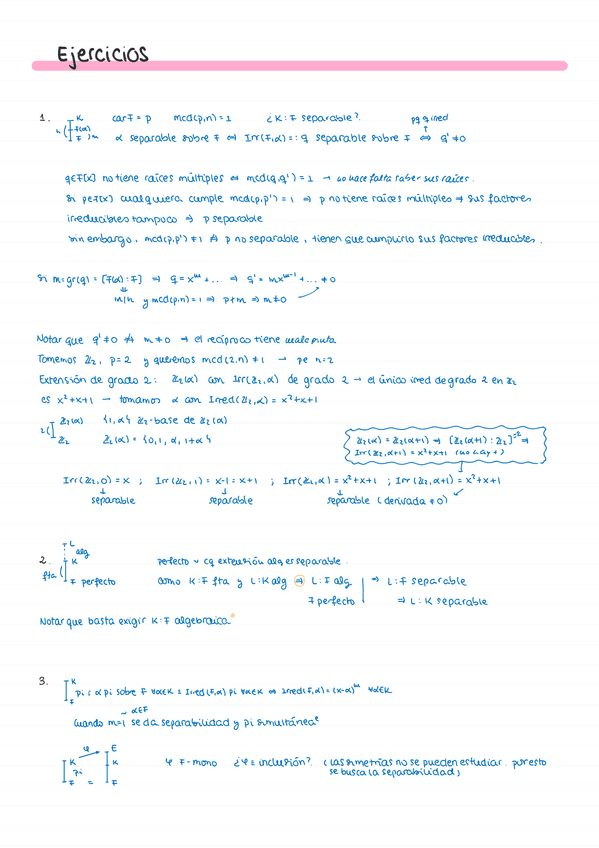 Ejercicios
1. K F(α) F n m car F = p mcd(p,n) = 1 ¿K:F separable? pq q irred
α separable sobre F ⇔ Irr(F,α) =: q separable sobre F ⇔ q' ≠ 0
q∈F[x] no tiene raíces múltiples ⇔ mcd(q,q') = 1 → no hace falta saber sus raíces.
Si p∈F[x] cualquiera cumple mcd(p,p') = 1 ⇒ p no tiene raíces múltiples ⇒ sus factores
irreducibles tampoco ⇒ p separable
sin embargo, mcd(p,p') ≠ 1 ⇏ p no separable, tienen que cumplirlo sus factores irreducibles.
Si m = gr(q) = [F(α):F] ⇒ q = x^m + ... ⇒ q' = mx^{m-1} + ... ≠ 0
m/n y mcd(p,n) = 1 ⇒ p∤m ⇒ m ≠ 0
Notar que q' ≠ 0 ⇏ m ≠ 0 → el recíproco tiene mala pinta
Tomemos ℤ₂, p = 2 y queremos mcd(2,n) ≠ 1 → pe n=2
Extensión de grado 2: ℤ₂(α) con Irr(ℤ₂,α) de grado 2 → el único irred de grado 2 en ℤ₂
es x²+x+1 → tomamos α con Irred(ℤ₂,α) = x²+x+1
2 ℤ₂(α) {1,α} ℤ₂-base de ℤ₂(α)
ℤ₂ ℤ₂(α) = {0,1,α,1+α}
ℤ₂(α) = ℤ₂(α+1) ⇒ [ℤ₂(α+1):ℤ₂] = 2 ⇒
Irr(ℤ₂,α+1) = x²+x+1 (no hay +)
Irr(ℤ₂,0) = x ; Irr(ℤ₂,1) = x-1 = x+1 ; Irr(ℤ₂,α) = x²+x+1 ; Irr(ℤ₂,α+1) = x²+x+1
↓ separable ↓ separable ↓ separable (derivada ≠ 0)
2. L alg K fta F perfecto perfecto ~ cq extensión alg es separable.
como K:F fta y L:K alg ⇒ L:F alg ⇒ L:F separable
F perfecto ⇒ L:K separable
Notar que basta exigir K:F algebraica
3. K F pi: α pi sobre F ∀α∈K ≡ Irred(F,α) pi ∀α∈K ⇔ Irred(F,α) = (x-α)^m ∀α∈K
~ α∈F
Cuando m=1 se da separabilidad y pi simultánea^e
φ E
K K φ F-mono ¿φ ≡ inclusión? (las simetrías no se pueden estudiar. por esto
pi se busca la separabilidad)
F = F